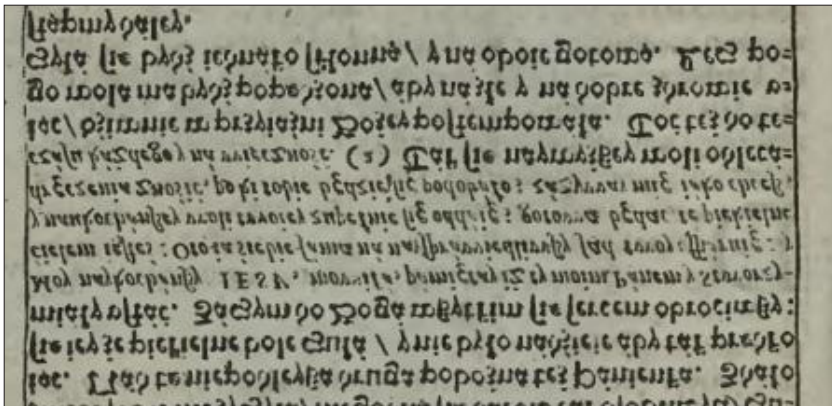 iąc. Nád te niepodleyſza druga pobożna też Pánienká. Zdáło
ſie iey że piekielne bole czułá / y nie było nádźieie áby ták prędko
miáły vſtáć. Záczym do Bogá wſzytkim ſie ſercem obroćiwſzy:
Moy naykochánſzy IESV, mowiłá, pomiętay iż ty moim Pánem y Stworzy-
cielem ieſteś: Oto ia siebie ſámá ná nayſpráwiedliwſzy ſąd twoy ofiáruię: y
y naukochánſzey woli twoiey zupełnie ſię oddáię; gotowa będąc te piekielne
dręczenia znośić, poki tobie będzie ſię podobáło; záżyway mię iáko chceſz,
czáſu káżdego y ná wieczność. (2) Ták ſie naywyżſzey woli oblecá-
iąc / dźiwnie w przyiáźni Bożey poſtempowáłá. Toć też do te-
go wolá ma bydź popędzona / áby ná złe y ná dobre zdrowie v-
czyłá ſie bydź iednáko ſkłonną / y ná oboie gotową. Lecz po-
ſtąpmy dáley.